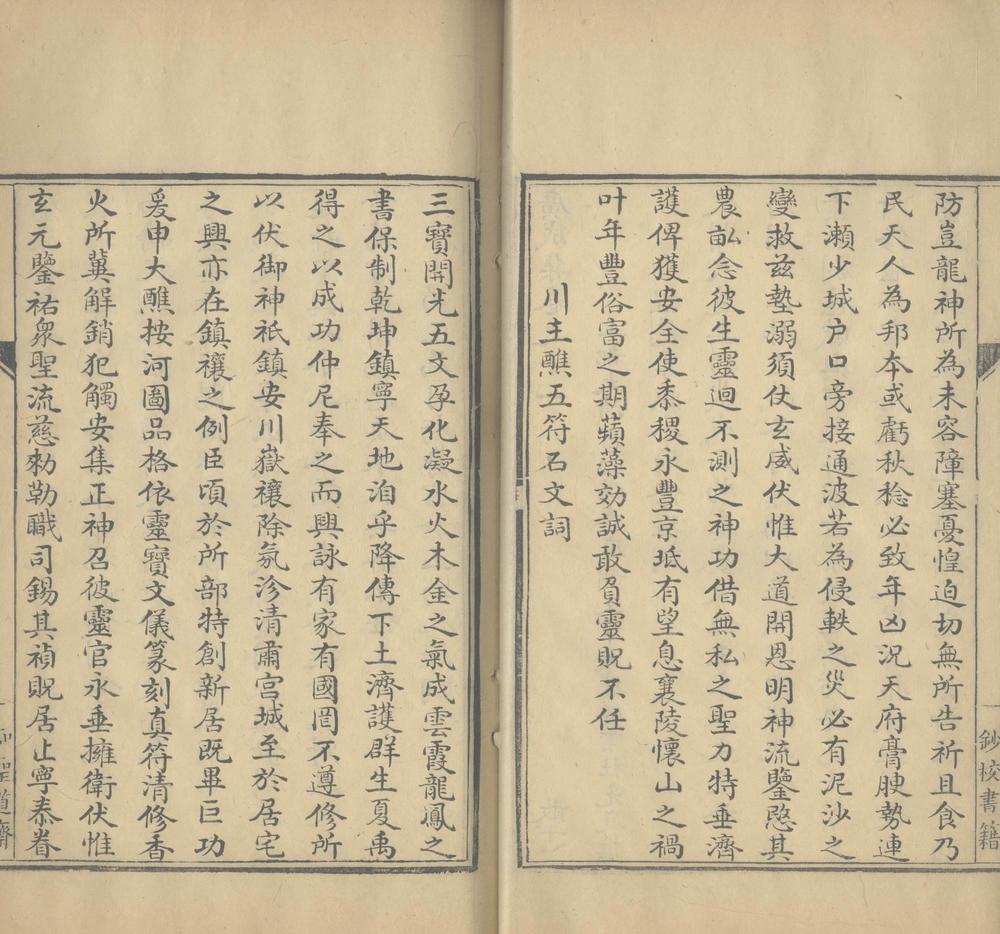 防豈龍神所為未容障塞憂惶迫切無所告祈且食乃
民天人為邦本或虧秋稔必致年凶況天府膏腴勢連
下瀨少城户口旁接通波若為侵軼之災必有泥沙之
變救兹墊溺須仗玄威伏惟大道開恩明神流鑒愍其
農畝念彼生靈迴不測之神功借無私之聖力特垂濟
護俾獲安全使黍稷永豐京坻有望息襄陵懷山之禍
叶年豐俗富之期蘋藻効誠敢負靈貺不任
川主醮五符石文詞
三寶開光五文孕化凝水火木金之氣成雲霞龍鳳之
書保制乾坤鎮寧天地洎乎降傳下土濟護群生夏禹
得之以成功仲尼奉之而興詠有家有國罔不遵修所
以伏御神祇鎮安川嶽禳除氛沴清肅宫城至於居宅
之興亦在鎮禳之例臣頃於所部特創新居既畢巨功
爰申大醮按河圖品格依靈寶文儀篆刻真符清修香
火所冀解銷犯觸安集正神召彼靈官永垂擁衛伏惟
玄元鑒祐衆聖流慈勑勒職司錫其禎貺居止寧泰眷
鈔校書籍
聖道齋